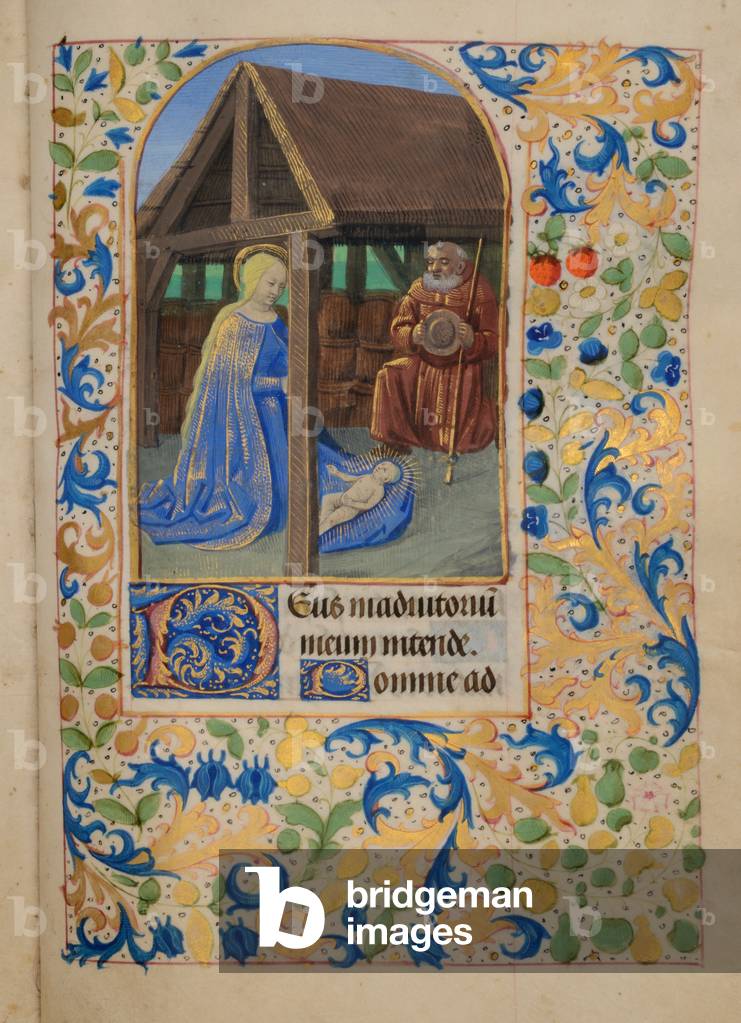 Deus in adiutoriū
meum intende.
Domine ad
bridgeman
images